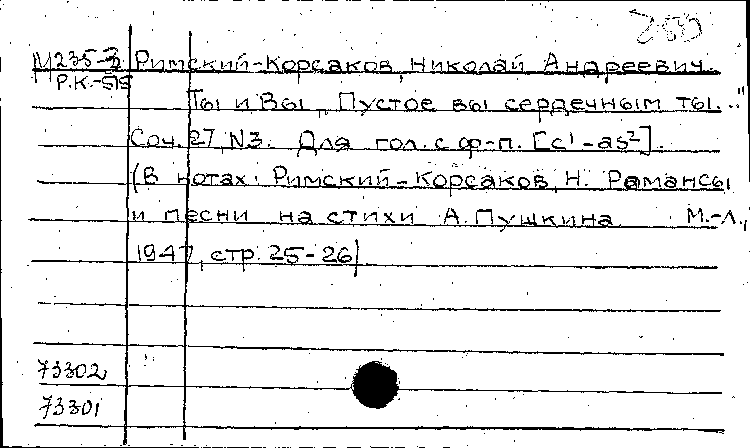 М235-3 Римский-Корсаков, Николай Андреевич.
Р.К.-515
Ты и Вы „Пустое вы сердечным ты..."
Соч. 27, N3. Для гол. с ф-п. [c¹-as²].
(В нотах: Римский-Корсаков, Н. Романсы
и песни на стихи А. Пушкина М.-Л.,
1947, стр. 25-26)
73302
73301